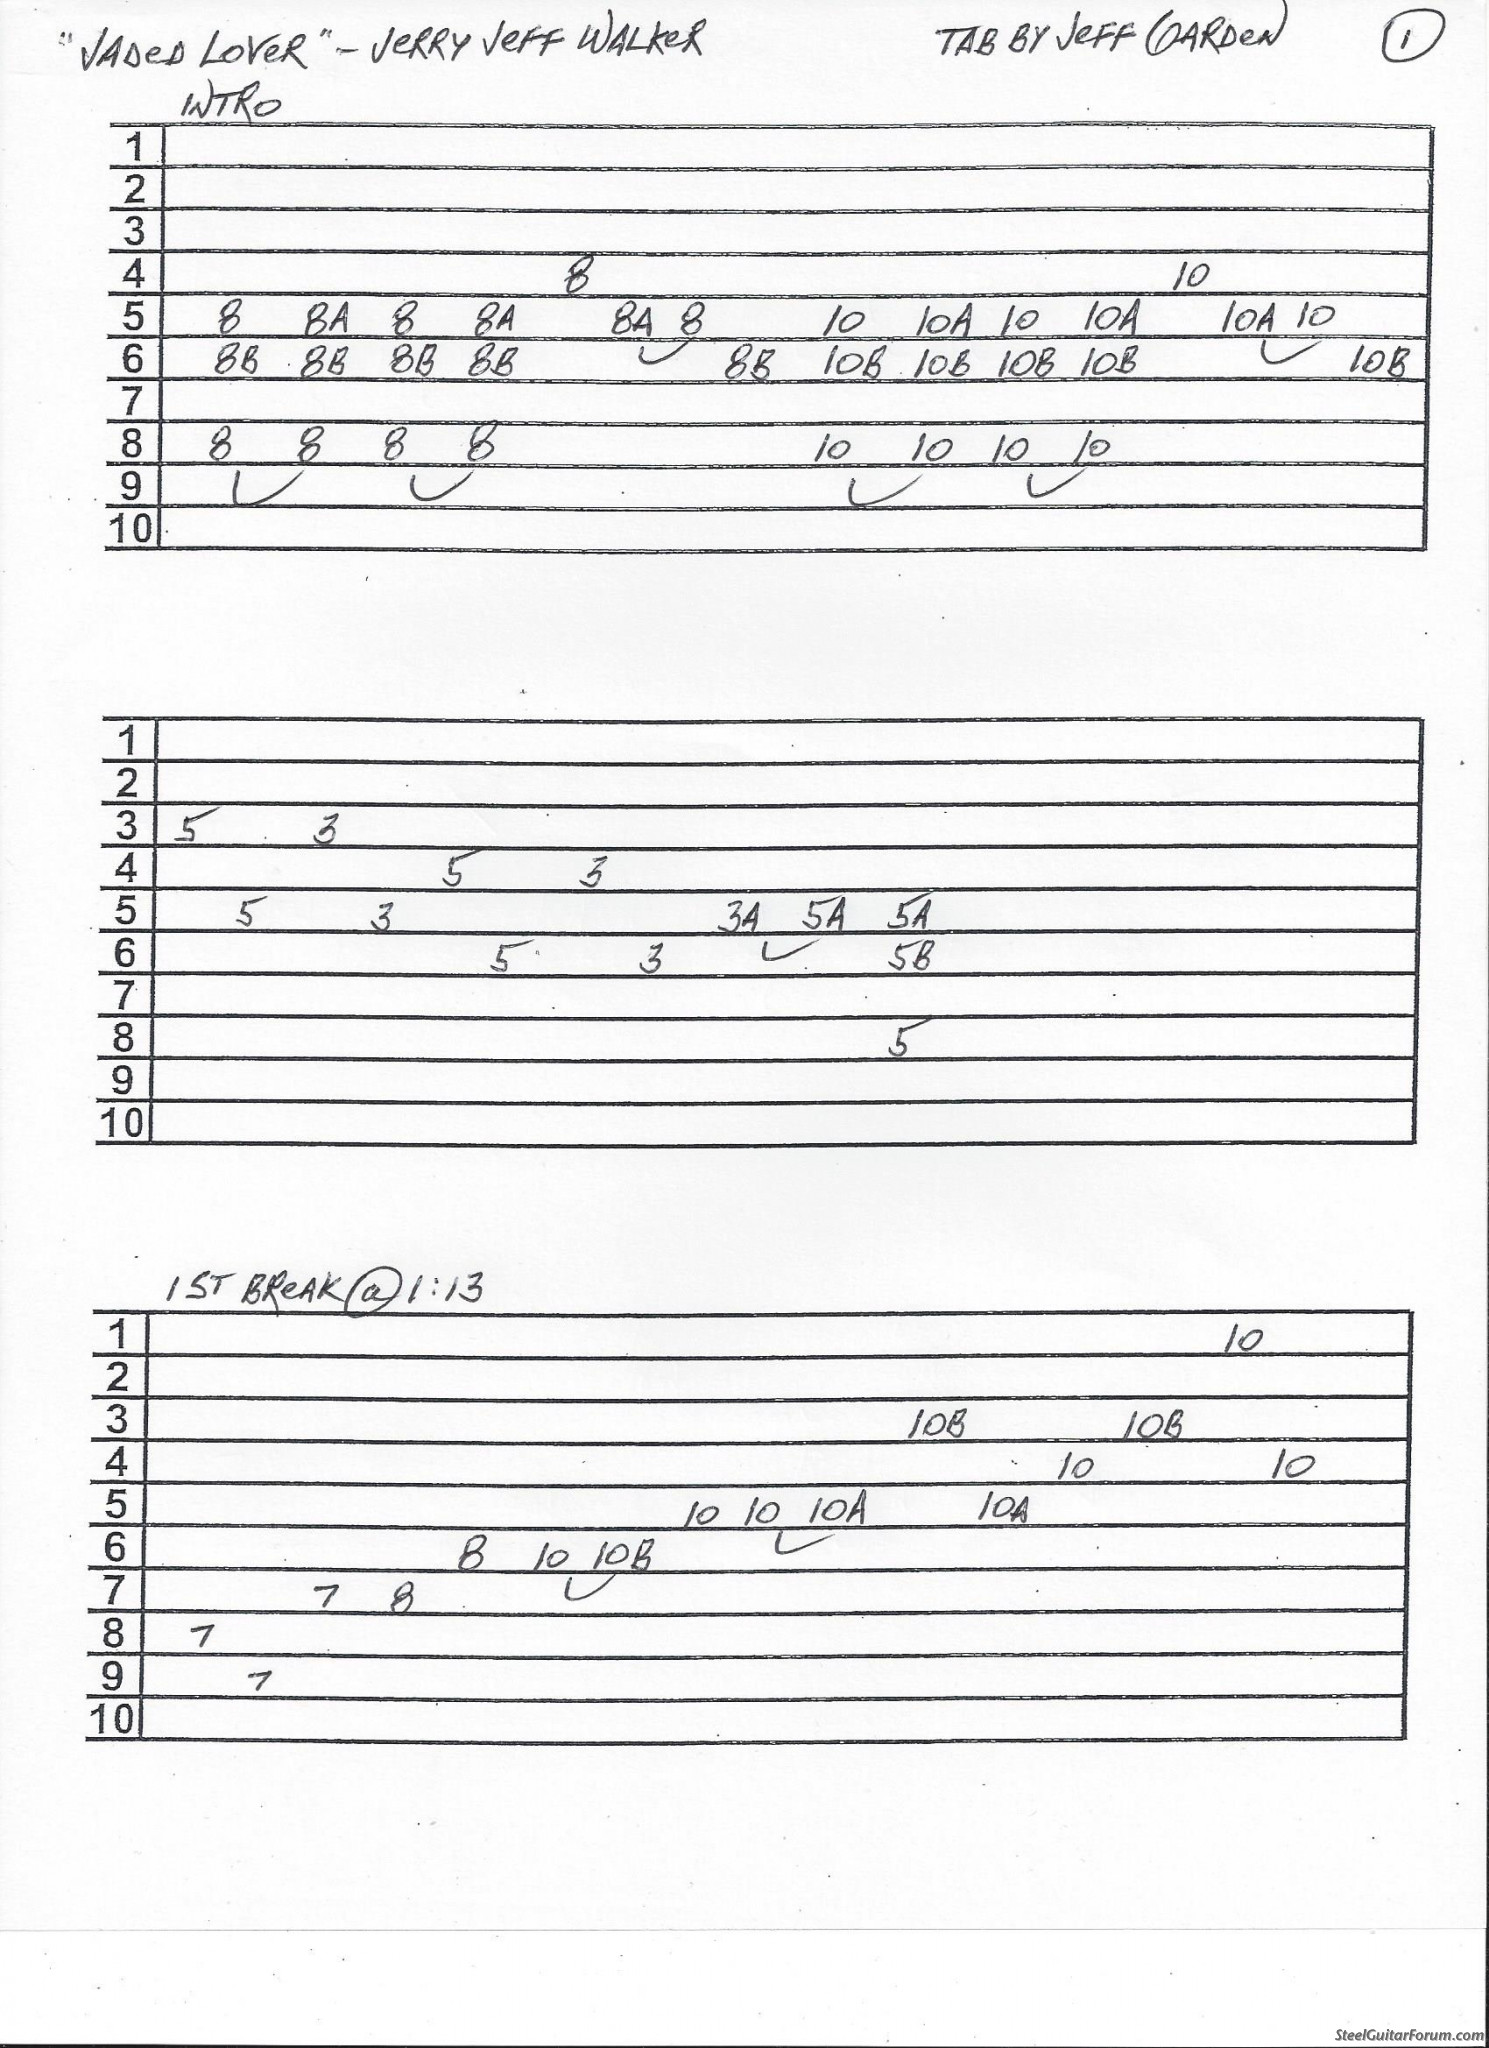 "JADED LOVER" - JERRY JEFF WALKER TAB BY JEFF GARDEN 1
INTRO
1
2
3
4 8 10
5 8 8A 8 8A 8A 8 10 10A 10 10A 10A 10
6 8B 8B 8B 8B 8B 10B 10B 10B 10B 10B
7
8 8 8 8 8 10 10 10 10
9
10
1
2
3 5 3
4 5 3
5 5 3 3A 5A 5A
6 5 3 5B
7
8 5
9
10
1ST BREAK @ 1:13
1 10
2
3 10B 10B
4 10 10
5 10 10 10A 10A
6 8 10 10B
7 7 8
8 7
9 7
10
SteelGuitarForum.com